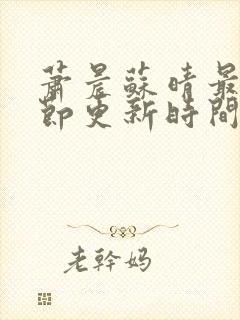 蕭晨蘇晴最
節更新時間
老幹媽